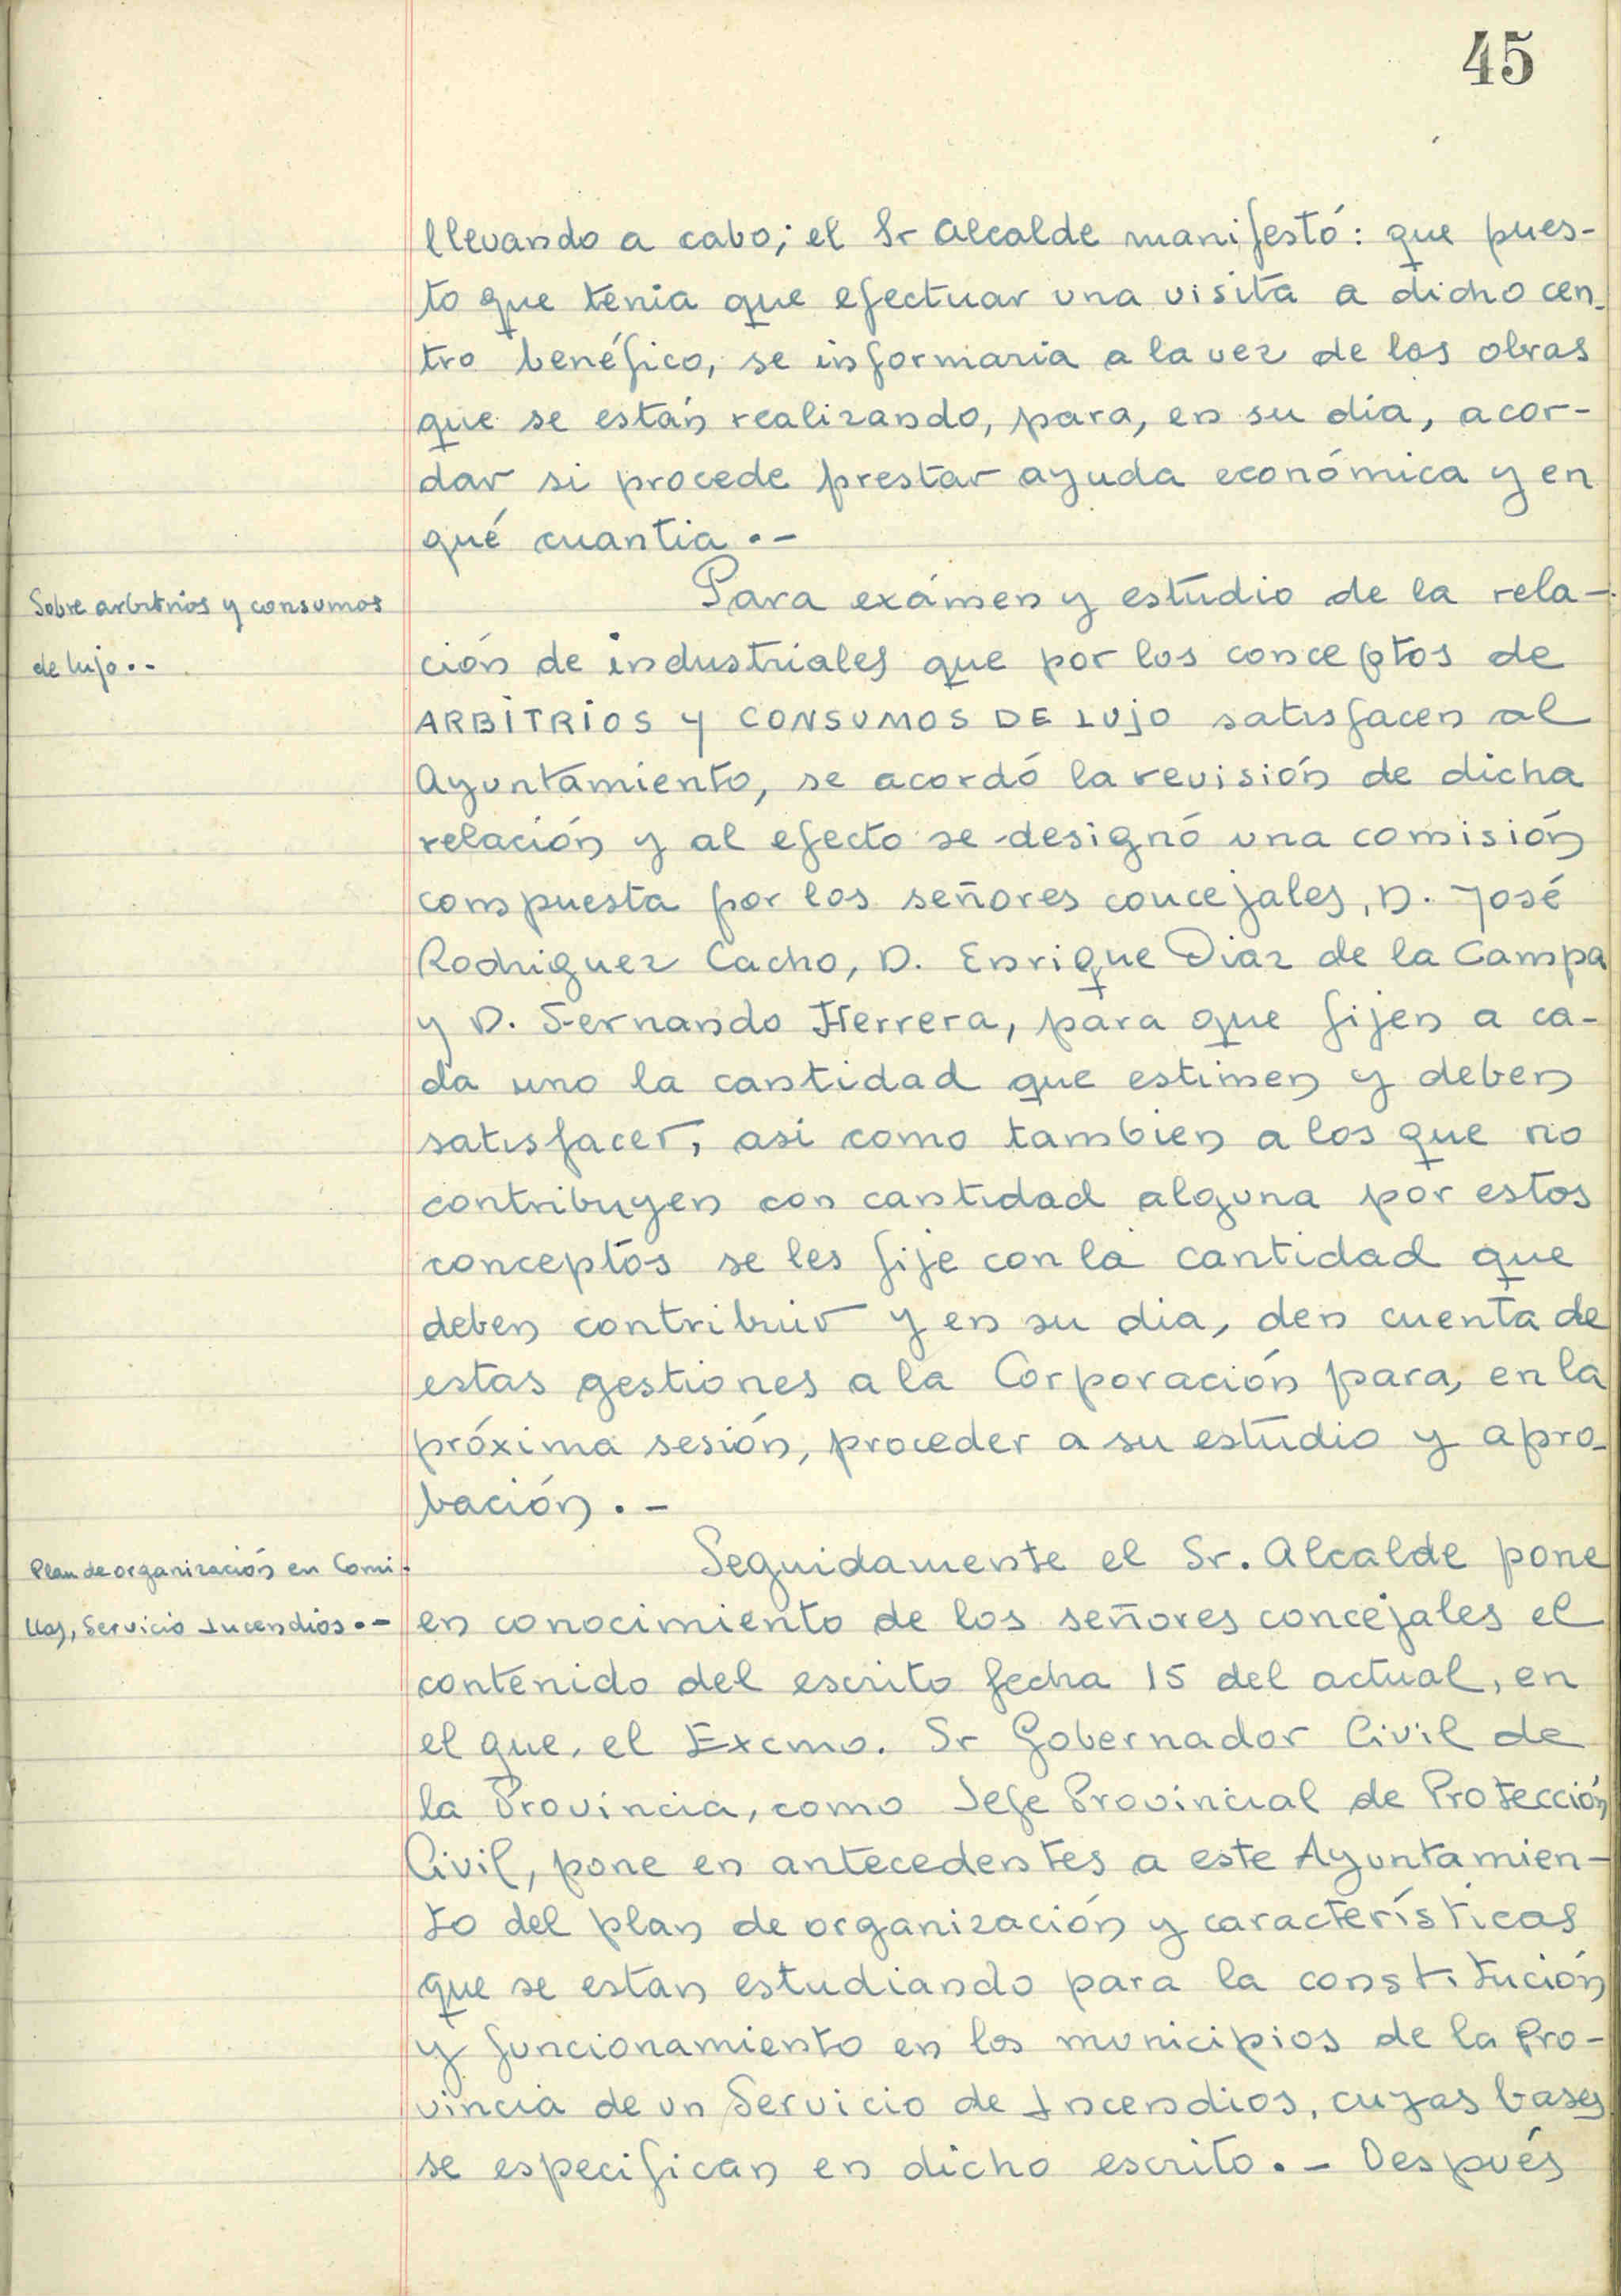 45
llevando a cabo; el Sr Alcalde manifestó: que pues-
to que tenia que efectuar una visita a dicho cen-
tro benéfico, se informaria a la vez de las obras
que se están realizando, para, en su dia, acor-
dar si procede prestar ayuda económica y en
qué cuantia.-
Sobre arbitrios y consumos
de lujo.-
Para exámen y estudio de la rela-
ción de industriales que por los conceptos de
ARBITRIOS Y CONSUMOS DE LUJO satisfacen al
Ayuntamiento, se acordó la revisión de dicha
relación y al efecto se designó una comisión
compuesta por los señores concejales, D. José
Rodriguez Cacho, D. Enrique Diaz de la Campa
y D. Fernando Herrera, para que fijen a ca-
da uno la cantidad que estimen y deben
satisfacer, asi como tambien a los que no
contribuyen con cantidad alguna por estos
conceptos se les fije con la cantidad que
deben contribuir y en su dia, den cuenta de
estas gestiones a la Corporación para, en la
próxima sesión, proceder a su estudio y apro-
bación.-
Plan de organización en Comi-
llas, Servicio Incendios.-
Seguidamente el Sr. Alcalde pone
en conocimiento de los señores concejales el
contenido del escrito fecha 15 del actual, en
el que, el Excmo. Sr Gobernador Civil de
la Provincia, como Jefe Provincial de Protección
Civil, pone en antecedentes a este Ayuntamien-
to del plan de organización y características
que se estan estudiando para la constitución
y funcionamiento en los municipios de la Pro-
vincia de un Servicio de Incendios, cuyas bases
se especifican en dicho escrito.- Después